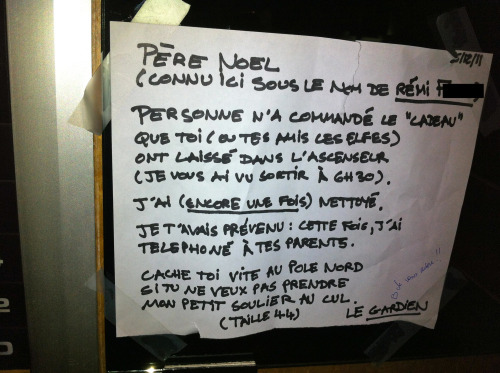 5/12/11
PÈRE NOEL
(CONNU ICI SOUS LE NOM DE RÉMI F
PERSONNE N'A COMMANDÉ LE "CADEAU"
QUE TOI (OU TES AMIS LES ELFES)
ONT LAISSÉ DANS L'ASCENSEUR
(JE VOUS AI VU SORTIR À 6H30).
J'AI (ENCORE UNE FOIS) NETTOYÉ.
JE T'AVAIS PRÉVENU : CETTE FOIS, J'AI
TELEPHONÉ À TES PARENTS.
CACHE TOI VITE AU POLE NORD
SI TU NE VEUX PAS PRENDRE
MON PETIT SOULIER AU CUL.
(TAILLE 44)
LE GARDIEN